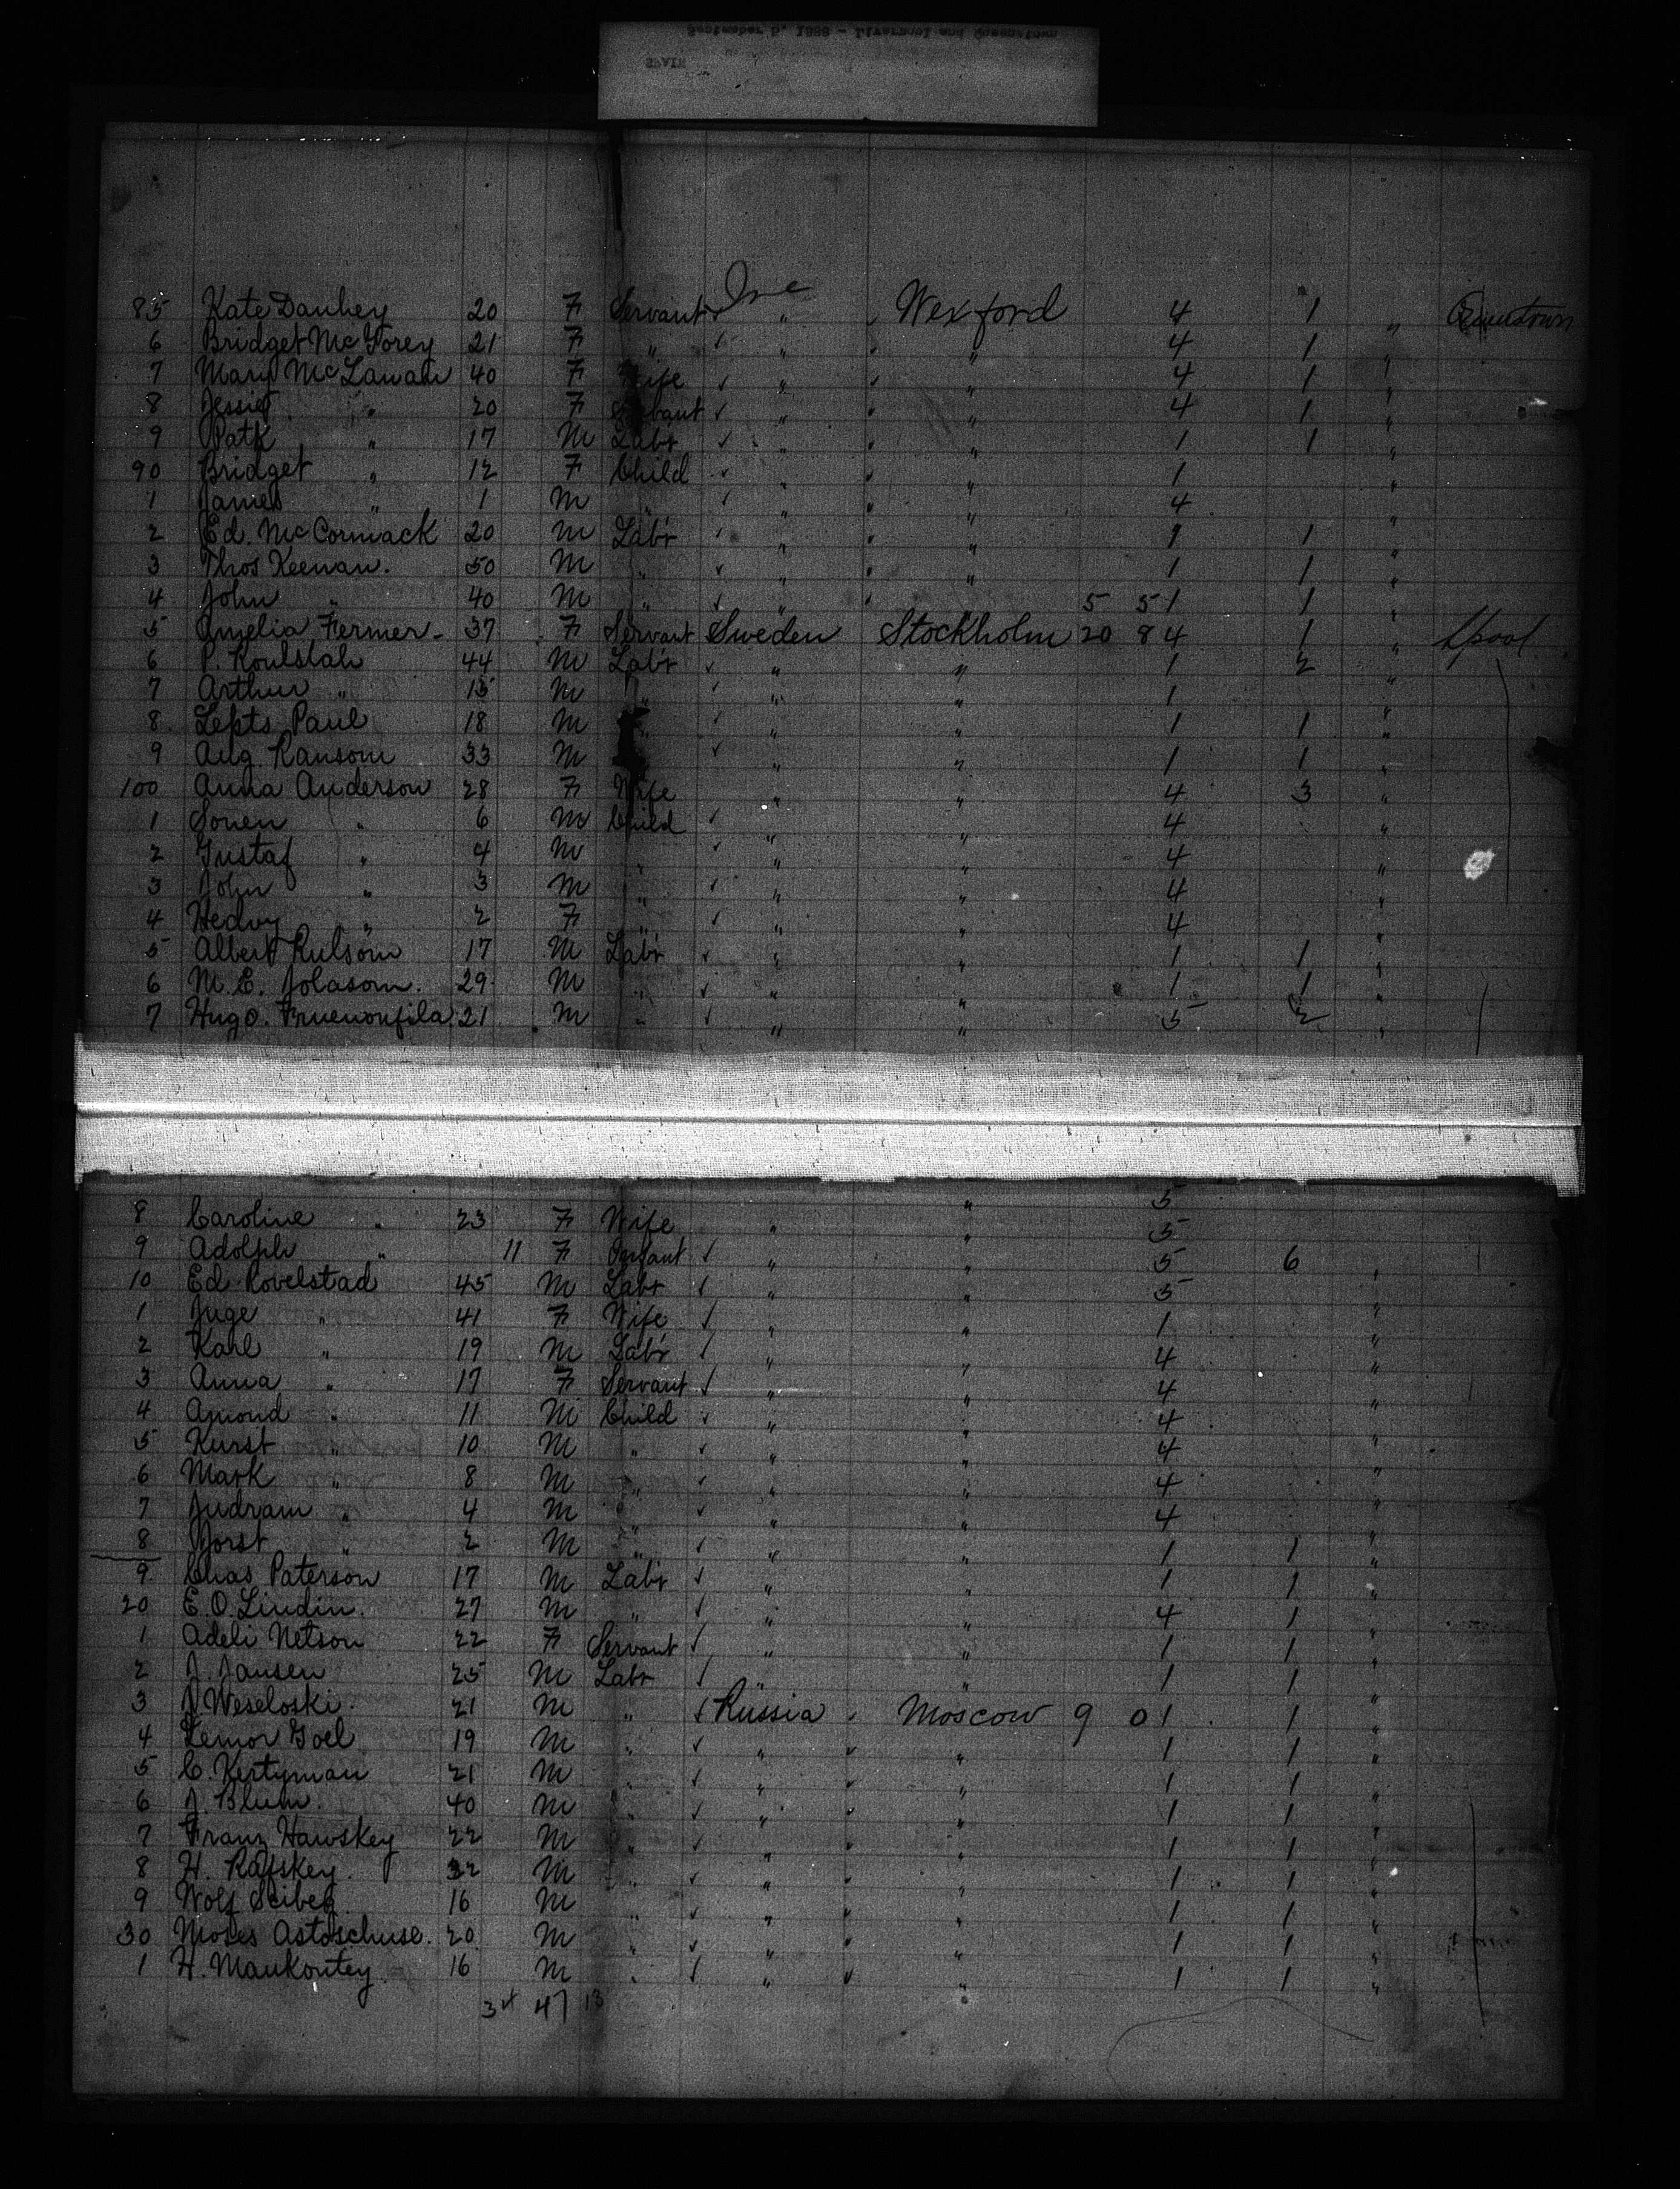 September 5, 1888 - Liverpool and Queenstown
SPAIN
Ire
85 Kate Daubey 20 F Servant ✓ " Wexford 4 1 " Queenstown
6 Bridget McTorey 21 F " ✓ " " 4 1 "
7 Mary McLawan 40 F Wife ✓ " " 4 1 "
8 Jessie " 20 F Servant ✓ " " 4 1 "
9 Patk " 17 M Labr ✓ " " 1 1 "
90 Bridget " 12 F Child ✓ " " 1 "
1 James " 1 M " ✓ " " 4 "
2 Ed. McCormack 20 M Labr ✓ " " 1 1 "
3 Thos Keenan. 50 M " ✓ " " 1 1 "
4 John " 40 M " ✓ " " 5 5 1 1 "
5 Amelia Fermer 37 F Servant Sweden Stockholm 20 8 4 1 " Lpool
6 P. Roulstah 44 M Labr ✓ " " 1 2 "
7 Arthur " 15 M " ✓ " " 1 "
8 Lepts Paul 18 M " ✓ " " 1 1 "
9 Aug. Ransom 33 M ✓ " " 1 1 "
100 Anna Anderson 28 F Wife " " 4 3 "
1 Sonen " 6 M Child ✓ " " 4 "
2 Gustaf " 4 M " ✓ " " 4 "
3 John " 3 M " ✓ " " 4 "
4 Hedvy " 2 F " ✓ " " 4 "
5 Albert Rulsom 17 M Labr ✓ " " 1 1 "
6 M. E. Jolasom. 29 M " ✓ " " 1 1 "
7 Hugo. Fruenonfila 21 M " ✓ " " 5 2 "
" 5
8 Caroline " 23 F Wife " " 5
9 Adolph " 11 F Infant ✓ " " 5 6 "
10 Ed Rovelstad 45 M Labr ✓ " " 5 "
1 Juge " 41 F Wife ✓ " " 1 "
2 Karl " 19 M Labr ✓ " " 4 "
3 Anna " 17 F Servant ✓ " " 4 "
4 Amond " 11 M Child ✓ " " 4 "
5 Kurst " 10 M " ✓ " " 4 "
6 Mark " 8 M " ✓ " " 4 "
7 Judram " 4 M " ✓ " " 4 "
8 Jorst " 2 M " ✓ " " 1 1 "
9 Chas Paterson 17 M Labr ✓ " " 1 1 "
20 E. O. Lindin. 27 M " ✓ " " 4 1 "
1 Adeli Netson 22 F Servant ✓ " " 1 1 "
2 J. Jansen 25 M Labr ✓ " " 1 1 "
3 N Weseloski. 21 M " ✓ Russia Moscow 9 0 1 1 "
4 Lemor Goel 19 M " ✓ " " 1 1 "
5 C. Kertyman 21 M " ✓ " " 1 1 "
6 J. Blum. 40 M " ✓ " " 1 1 "
7 Franz Hawskey 22 M " ✓ " " 1 1 "
8 H. Rafskey. 32 M " ✓ " " 1 1 "
9 Wolf Seibeg 16 M " ✓ " " 1 1 "
30 Moses Astoschuse. 20 M " ✓ " " 1 1 "
1 H. Maukontey. 16 M " ✓ " " 1 1 "
34 47 13